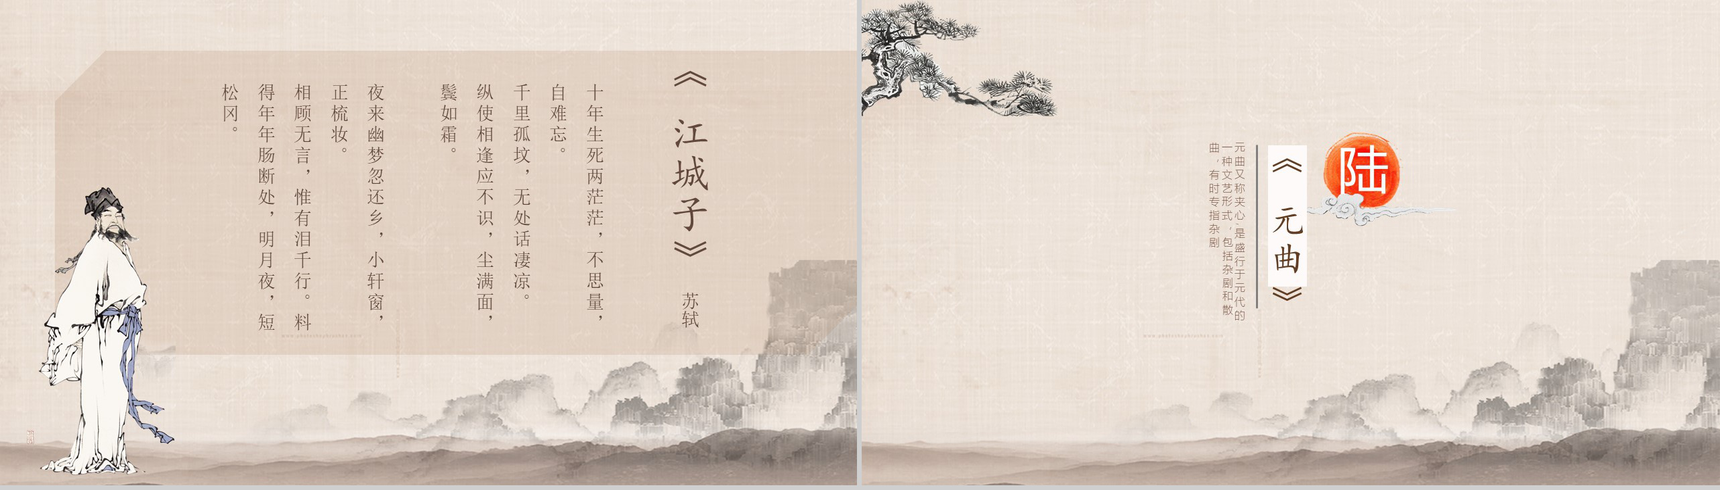 《江城子》
苏轼
十年生死两茫茫，不思量，
自难忘。
千里孤坟，无处话凄凉。
纵使相逢应不识，尘满面，
鬓如霜。
夜来幽梦忽还乡，小轩窗，
正梳妆。
相顾无言，惟有泪千行。料
得年年肠断处，明月夜，短
松冈。
陆
《元曲》
元曲又称夹心，是盛行于元代的
一种文艺形式，包括杂剧和散
曲，有时专指杂剧